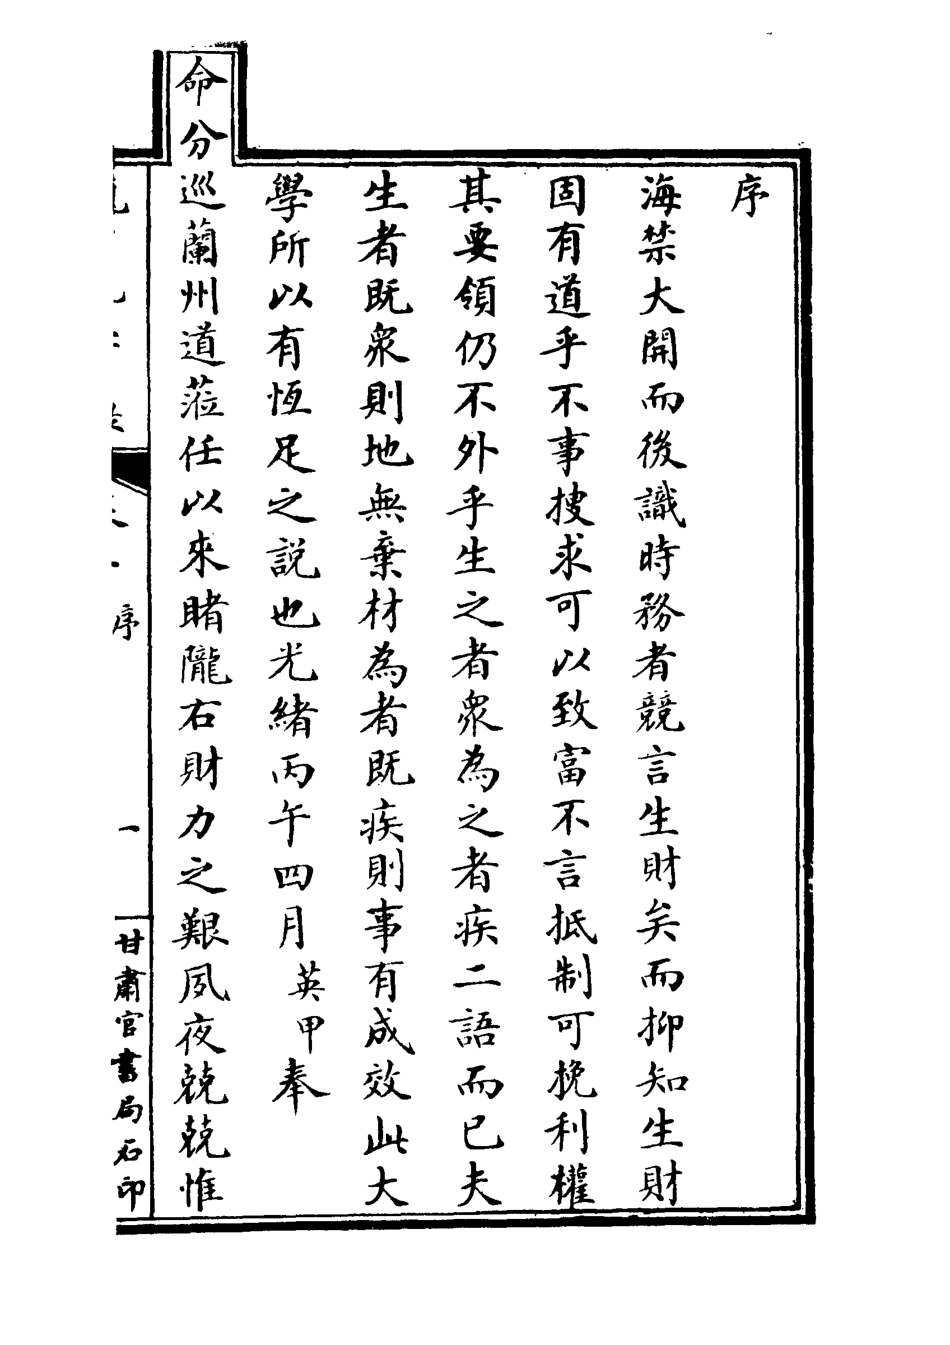 序
海禁大開而後識時務者競言生財矣而抑知生財
固有道乎不事搜求可以致富不言抵制可挽利權
其要領仍不外乎生之者眾為之者疾二語而已夫
生者既眾則地無棄材為者既疾則事有成效此大
學所以有恆足之説也光緒丙午四月英甲奉
命分巡蘭州道蒞任以來睹隴右財力之艱夙夜兢兢惟
序
一
甘肅官書局石印